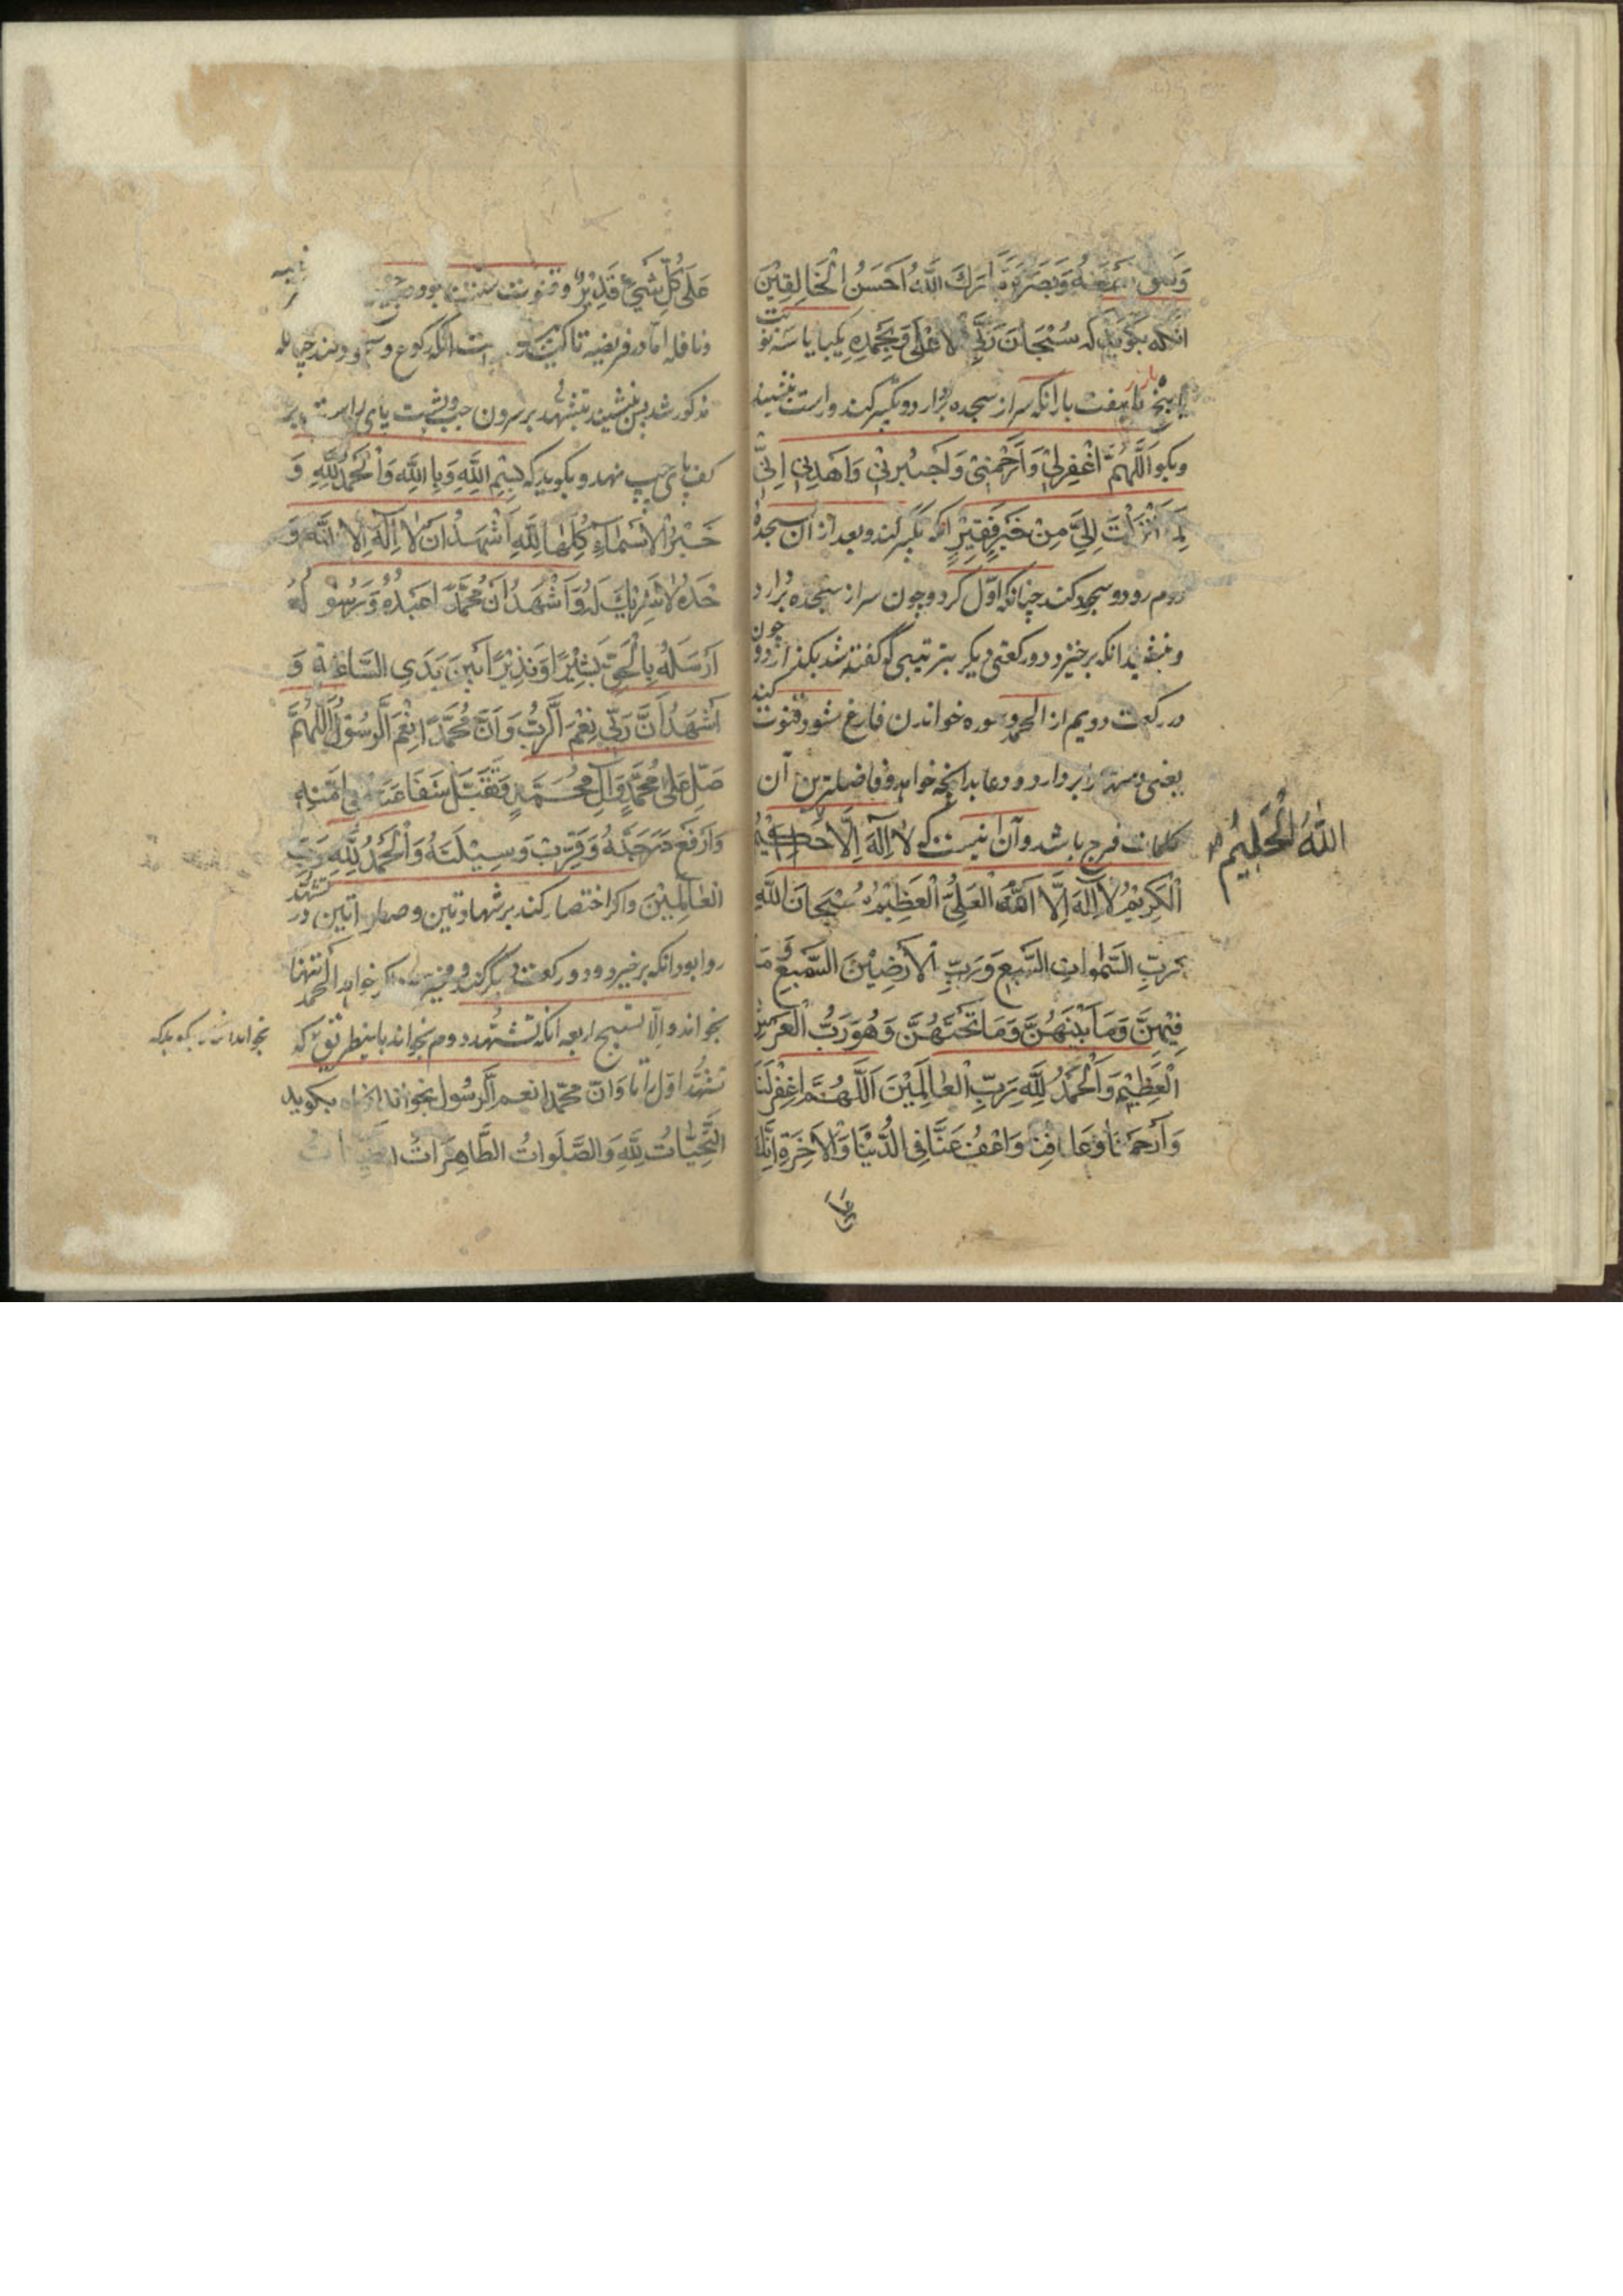 وَشَقَّ سَمْعَهُ وَبَصَرَهُ تَبَارَكَ اللَّهُ اَحْسَنُ الْخَالِقِيْنَ
انکه بکوید که سُبْحَانَ رَبِّيَ الْاَعْلٰى وَبِحَمْدِهِ یکبار یا سه نوبت
یا پنج یا هفت بار انکه سر از سجده بردارد و تکبیر کند و راست بنشیند
و بکو اَللَّهُمَّ اغْفِرْلِيْ وَارْحَمْنِيْ وَاجْبُرْنِيْ وَاهْدِنِيْ اِنِّيْ
لِمَا اَنْزَلْتَ اِلَيَّ مِنْ خَيْرٍ فَقِيْرٌ انکه تکبیر کند و بعد از ان سجدهٔ
دوم رود و سجود کند چنانکه اوّل کرد و چون سر از سجده بردارد
بنشیند انکه برخیزد و رکعتی دیکر بترتیبی که گفته شد بکذارد و چون
در رکعت دویم از الحمد و سوره خواندن فارغ شود قنوت کند
یعنی دستها بردارد و دعا بدانچه خواهد و فاضلترین آن
کلمات فرج باشد و آن اینست که لَا اِلٰهَ اِلَّا
اللّٰهُ الْحَلِيْمُ
الْكَرِيْمُ لَا اِلٰهَ اِلَّا اللَّهُ الْعَلِيُّ الْعَظِيْمُ سُبْحَانَ اللَّهِ
رَبِّ السَّمٰوَاتِ السَّبْعِ وَرَبِّ الْاَرَضِيْنَ السَّبْعِ وَمَا
فِيْهِنَّ وَمَا بَيْنَهُنَّ وَمَا تَحْتَهُنَّ وَهُوَ رَبُّ الْعَرْشِ
الْعَظِيْمِ وَالْحَمْدُ لِلَّهِ رَبِّ الْعَالَمِيْنَ اَللَّهُمَّ اغْفِرْلَنَا
وَارْحَمْنَا وَعَافِنَا وَاعْفُ عَنَّا فِي الدُّنْيَا وَالْاٰخِرَةِ اِنَّكَ
عَلٰى كُلِّ شَيْءٍ قَدِيْرٌ و قنوت سنّت بود
و نافله امّا در فریضه انکه رکوع و چنانکه
مذکور شد پس بنشیند بتشهّد بر سرون چپ و پشت پای راست بر
کف پای چپ نهد و بکوید که بِسْمِ اللَّهِ وَبِاللَّهِ وَالْحَمْدُ لِلَّهِ وَ
خَيْرُ الْاَسْمَاءِ كُلُّهَا لِلَّهِ اَشْهَدُ اَنْ لَا اِلٰهَ اِلَّا اللَّهُ وَ
حْدَهُ لَا شَرِيْكَ لَهُ وَاَشْهَدُ اَنَّ مُحَمَّدًا عَبْدُهُ وَرَسُوْلُهُ
اَرْسَلَهُ بِالْحَقِّ بَشِيْرًا وَنَذِيْرًا بَيْنَ يَدَيِ السَّاعَةِ وَ
اَشْهَدُ اَنَّ رَبِّيْ نِعْمَ الرَّبُّ وَاَنَّ مُحَمَّدًا نِعْمَ الرَّسُوْلُ اَللَّهُمَّ
صَلِّ عَلٰى مُحَمَّدٍ وَاٰلِ مُحَمَّدٍ وَتَقَبَّلْ شَفَاعَتَهُ فِيْ اُمَّتِهِ
وَارْفَعْ دَرَجَتَهُ وَقَرِّبْ وَسِيْلَتَهُ وَالْحَمْدُ لِلَّهِ رَبِّ
الْعَالَمِيْنَ و اکر اختصار کند بر شهادتین و صلواتین در تشهّد
روا بود انکه برخیزد و دو رکعت دیکر کند اکر خواهد الحمد تنها
بخواند و الّا تسبیح اربعه انکه تشهّد دوم بخواند باینطریق که
تشهّد اوّل را تا وَاَنَّ مُحَمَّدًا نِعْمَ الرَّسُوْل بخواند بکوید
اَلتَّحِيَّاتُ لِلَّهِ وَالصَّلَوَاتُ الطَّاهِرَاتُ